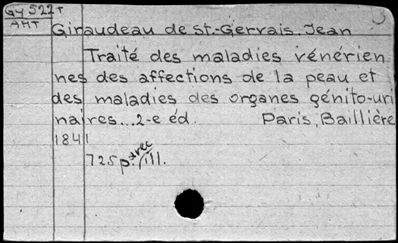 Gy 522 T
АНТ
Giraudeau de St.-Gervais, Jean
Traité des maladies vénérien
nes des affections de la peau et
des maladies des organes génito-uri
naires...2-e éd. Paris, Baillière
1841
725p. ill.